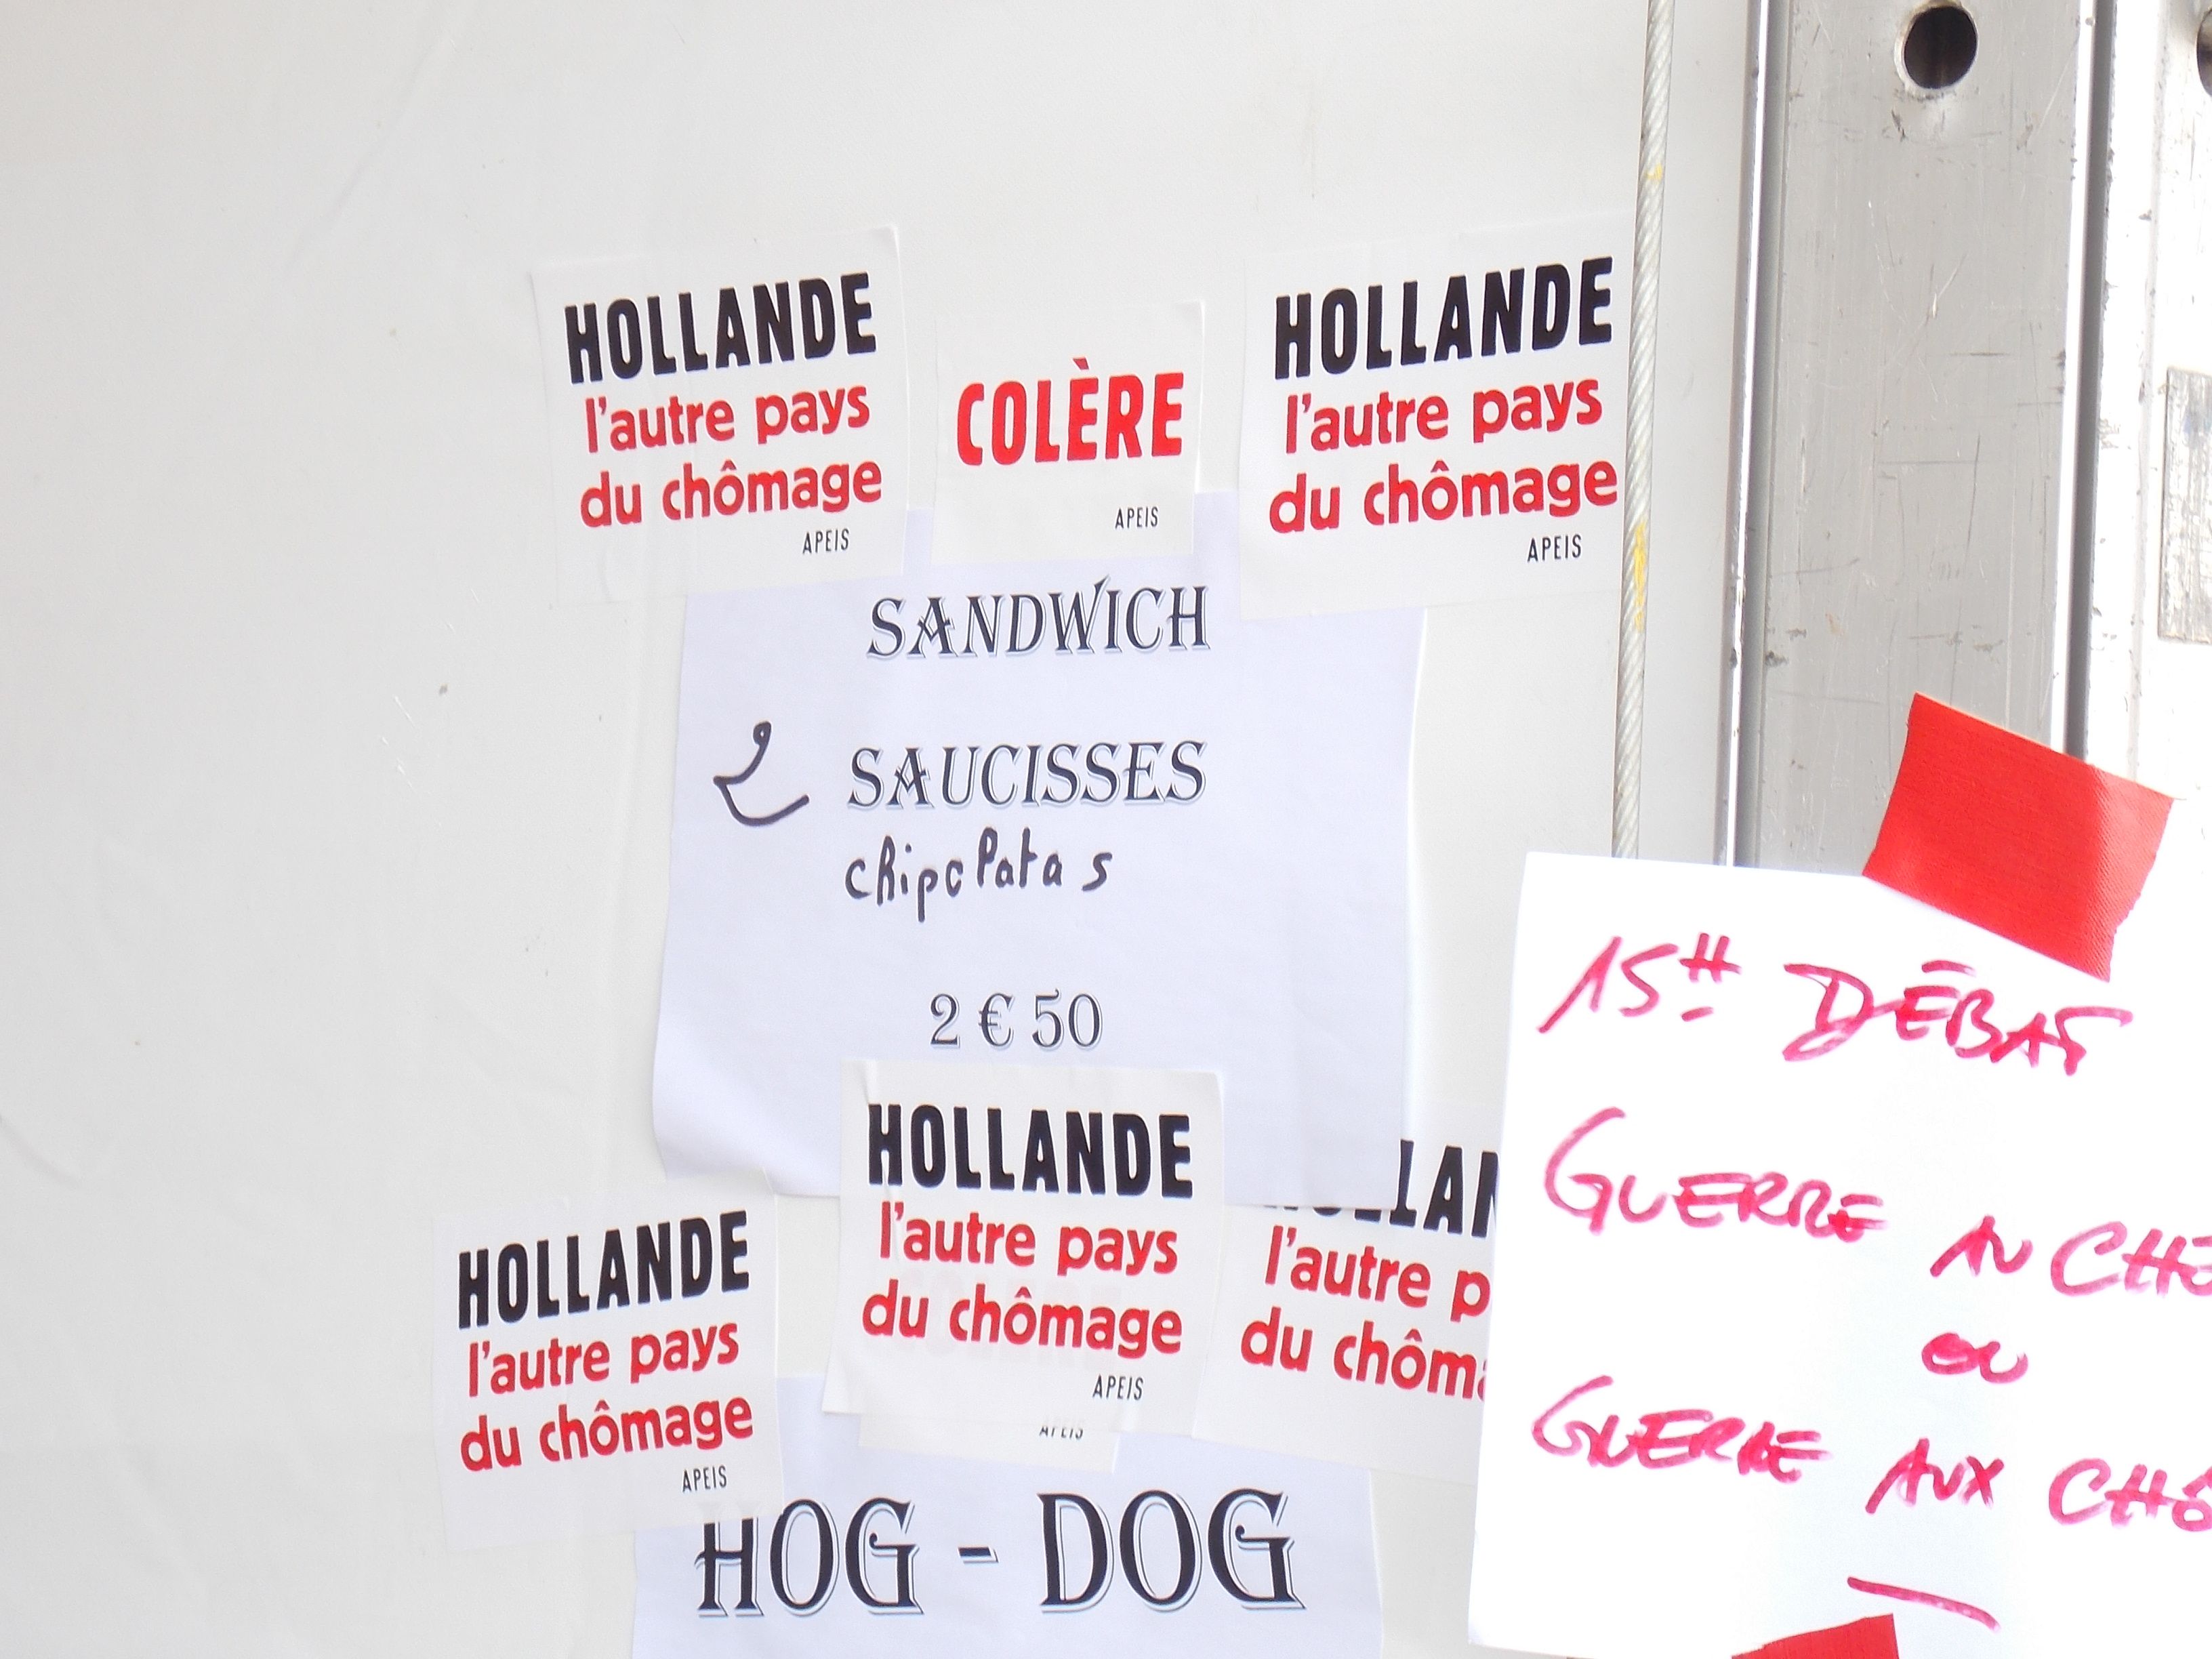 HOLLANDE
l'autre pays
du chômage
APEIS
COLÈRE
APEIS
HOLLANDE
l'autre pays
du chômage
APEIS
SANDWICH
2 SAUCISSES
chipolatas
2 € 50
HOLLANDE
l'autre pays
du chômage
APEIS
APEIS
HOLLANDE
l'autre pays
du chômage
APEIS
LLAN
l'autre p
du chôma
HOG - DOG
15H DÉBAT
GUERRE AU CHÔ
OU
GUERRE AUX CHÔ